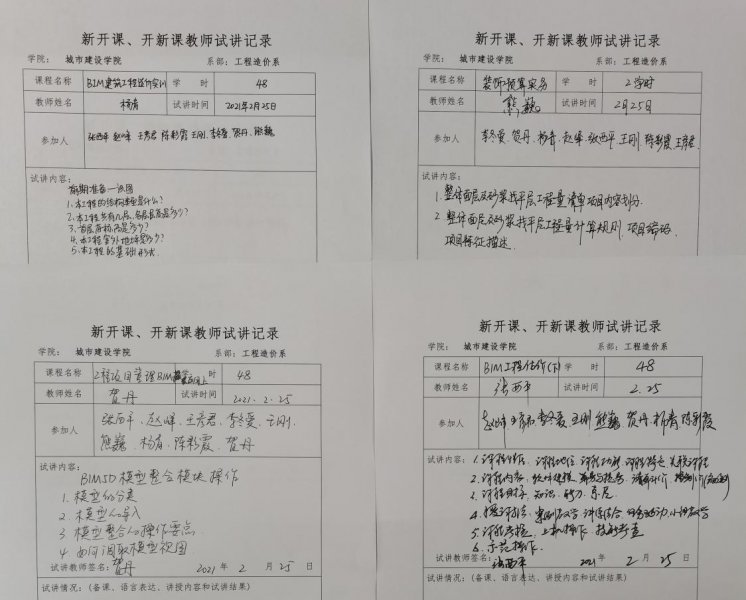 新开课、开新课教师试讲记录
学院： 城市建设学院 系部：工程造价系
课程名称 BIM建筑工程造价实训 学 时 48
教师姓名 杨青 试讲时间 2021年2月25日
参加人 张西平 赵峰 王彦君 陈彩霞 王刚 李冬蔓 贺丹 熊巍
试讲内容：
前期准备—识图
1、本工程的结构类型是什么？
2、本工程共有几层、各层层高是多少？
3、首层层高是多少？
4、本工程室外地坪是多少？
5、本工程的基础形式
新开课、开新课教师试讲记录
学院： 城市建设学院 系部：工程造价系
课程名称 装饰预算实务 学 时 2学时
教师姓名 熊巍 试讲时间 2月25日
参加人 李冬蔓、贺丹、杨青、赵峰、张西平、王刚、陈彩霞、王彦君
试讲内容：
1、整体面层及砂浆找平层工程量清单项目内容划分.
2 整体面层及砂浆找平层工程量计算规则、项目编码、
项目特征描述.
新开课、开新课教师试讲记录
学院： 城市建设学院 系部：工程造价系
课程名称 工程项目管理BIM 学 时 48
教师姓名 贺丹 试讲时间 2021.2.25
参加人 张西平、赵峰、王彦君、李冬蔓、王刚、
熊巍、杨青、陈彩霞、贺丹
试讲内容：
BIM5D模型整合模块操作
1、模型的分类
2、模型的导入
3 模型整合的操作要点
4 如何调取模型视图
试讲教师签名： 贺丹 2021 年 2 月 25 日
试讲情况：（备课、语言表达、讲授内容和试讲结果）
新开课、开新课教师试讲记录
学院： 城市建设学院 系部：工程造价系
课程名称 BIM工程估价(下) 学 时 48
教师姓名 张西平 试讲时间 2.25
参加人 赵峰 王彦君 李冬蔓 王刚 熊巍 贺丹 杨青 陈彩霞
试讲内容：
1、课程性质、课程地位、课程功能、课程特点
2、课程内容：软件建模
3、课程目标、知识、能力、素质
4、
5、课程考核、上机操作
6、示范操作.
试讲教师签名： 张西平 2021 年 2 月 25 日
试讲情况：（备课、语言表达、讲授内容和试讲结果）